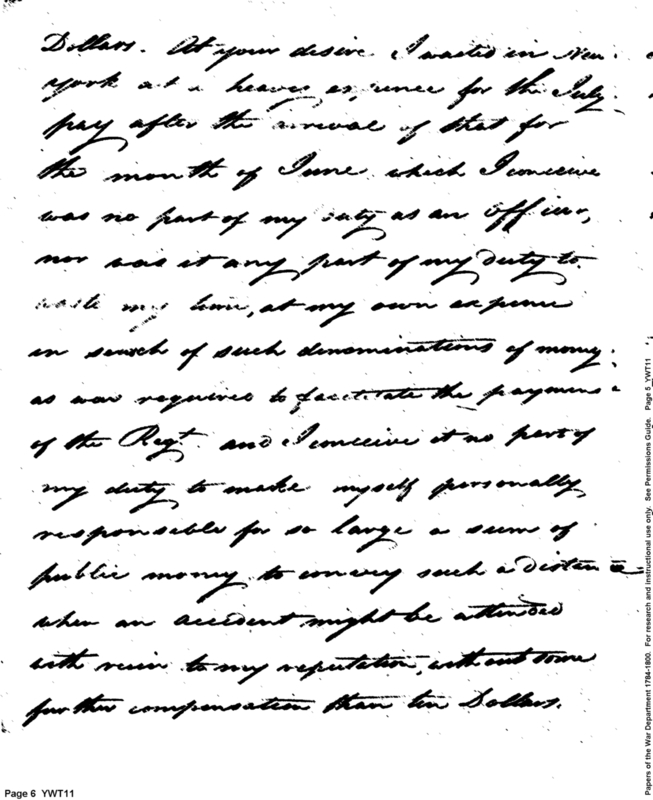 Dollars. At your desire I waited in New
York at a heavy expence for the July
pay after the arrival of that for
the month of June which I conceive
was no part of my duty as an officer,
nor was it any part of my duty to
waste my time, at my own expence
in search of such denominations of money
as was required to facilitate the payment
of the Regt. and I conceive it no part of
my duty to make myself personally
responsable for so large a sum of
public money to convey such a distance
when an accident might be attended
with ruin to my reputation, without some
further compensation than ten Dollars.
Page 6 YWT11
Papers of the War Department 1784-1800. For research and instructional use only. See Permissions Guide. Page 5_YWT11